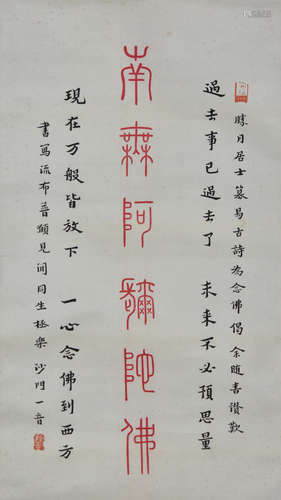 勝月居士纂易古詩為念佛偈 余随喜讚歎
過去事已過去了 未来不必預思量
南無阿彌陀佛
現在万般皆放下 一心念佛到西方
書寫流布普願見聞同生極樂 沙門一音